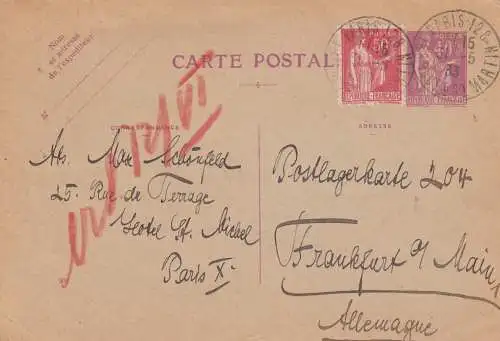 Nom
et adresse
de l'expéditeur
CARTE POSTALE
50
POSTES
RÉPUBLIQUE FRANÇAISE
PARIS
CORRESPONDANCE
ADRESSE
Abs. Max Schönfeld
25. Rue de Terrage
Hotel St. Michel
Paris X.
Postlagerkarte 204
Frankfurt a/ Main,
Allemagne